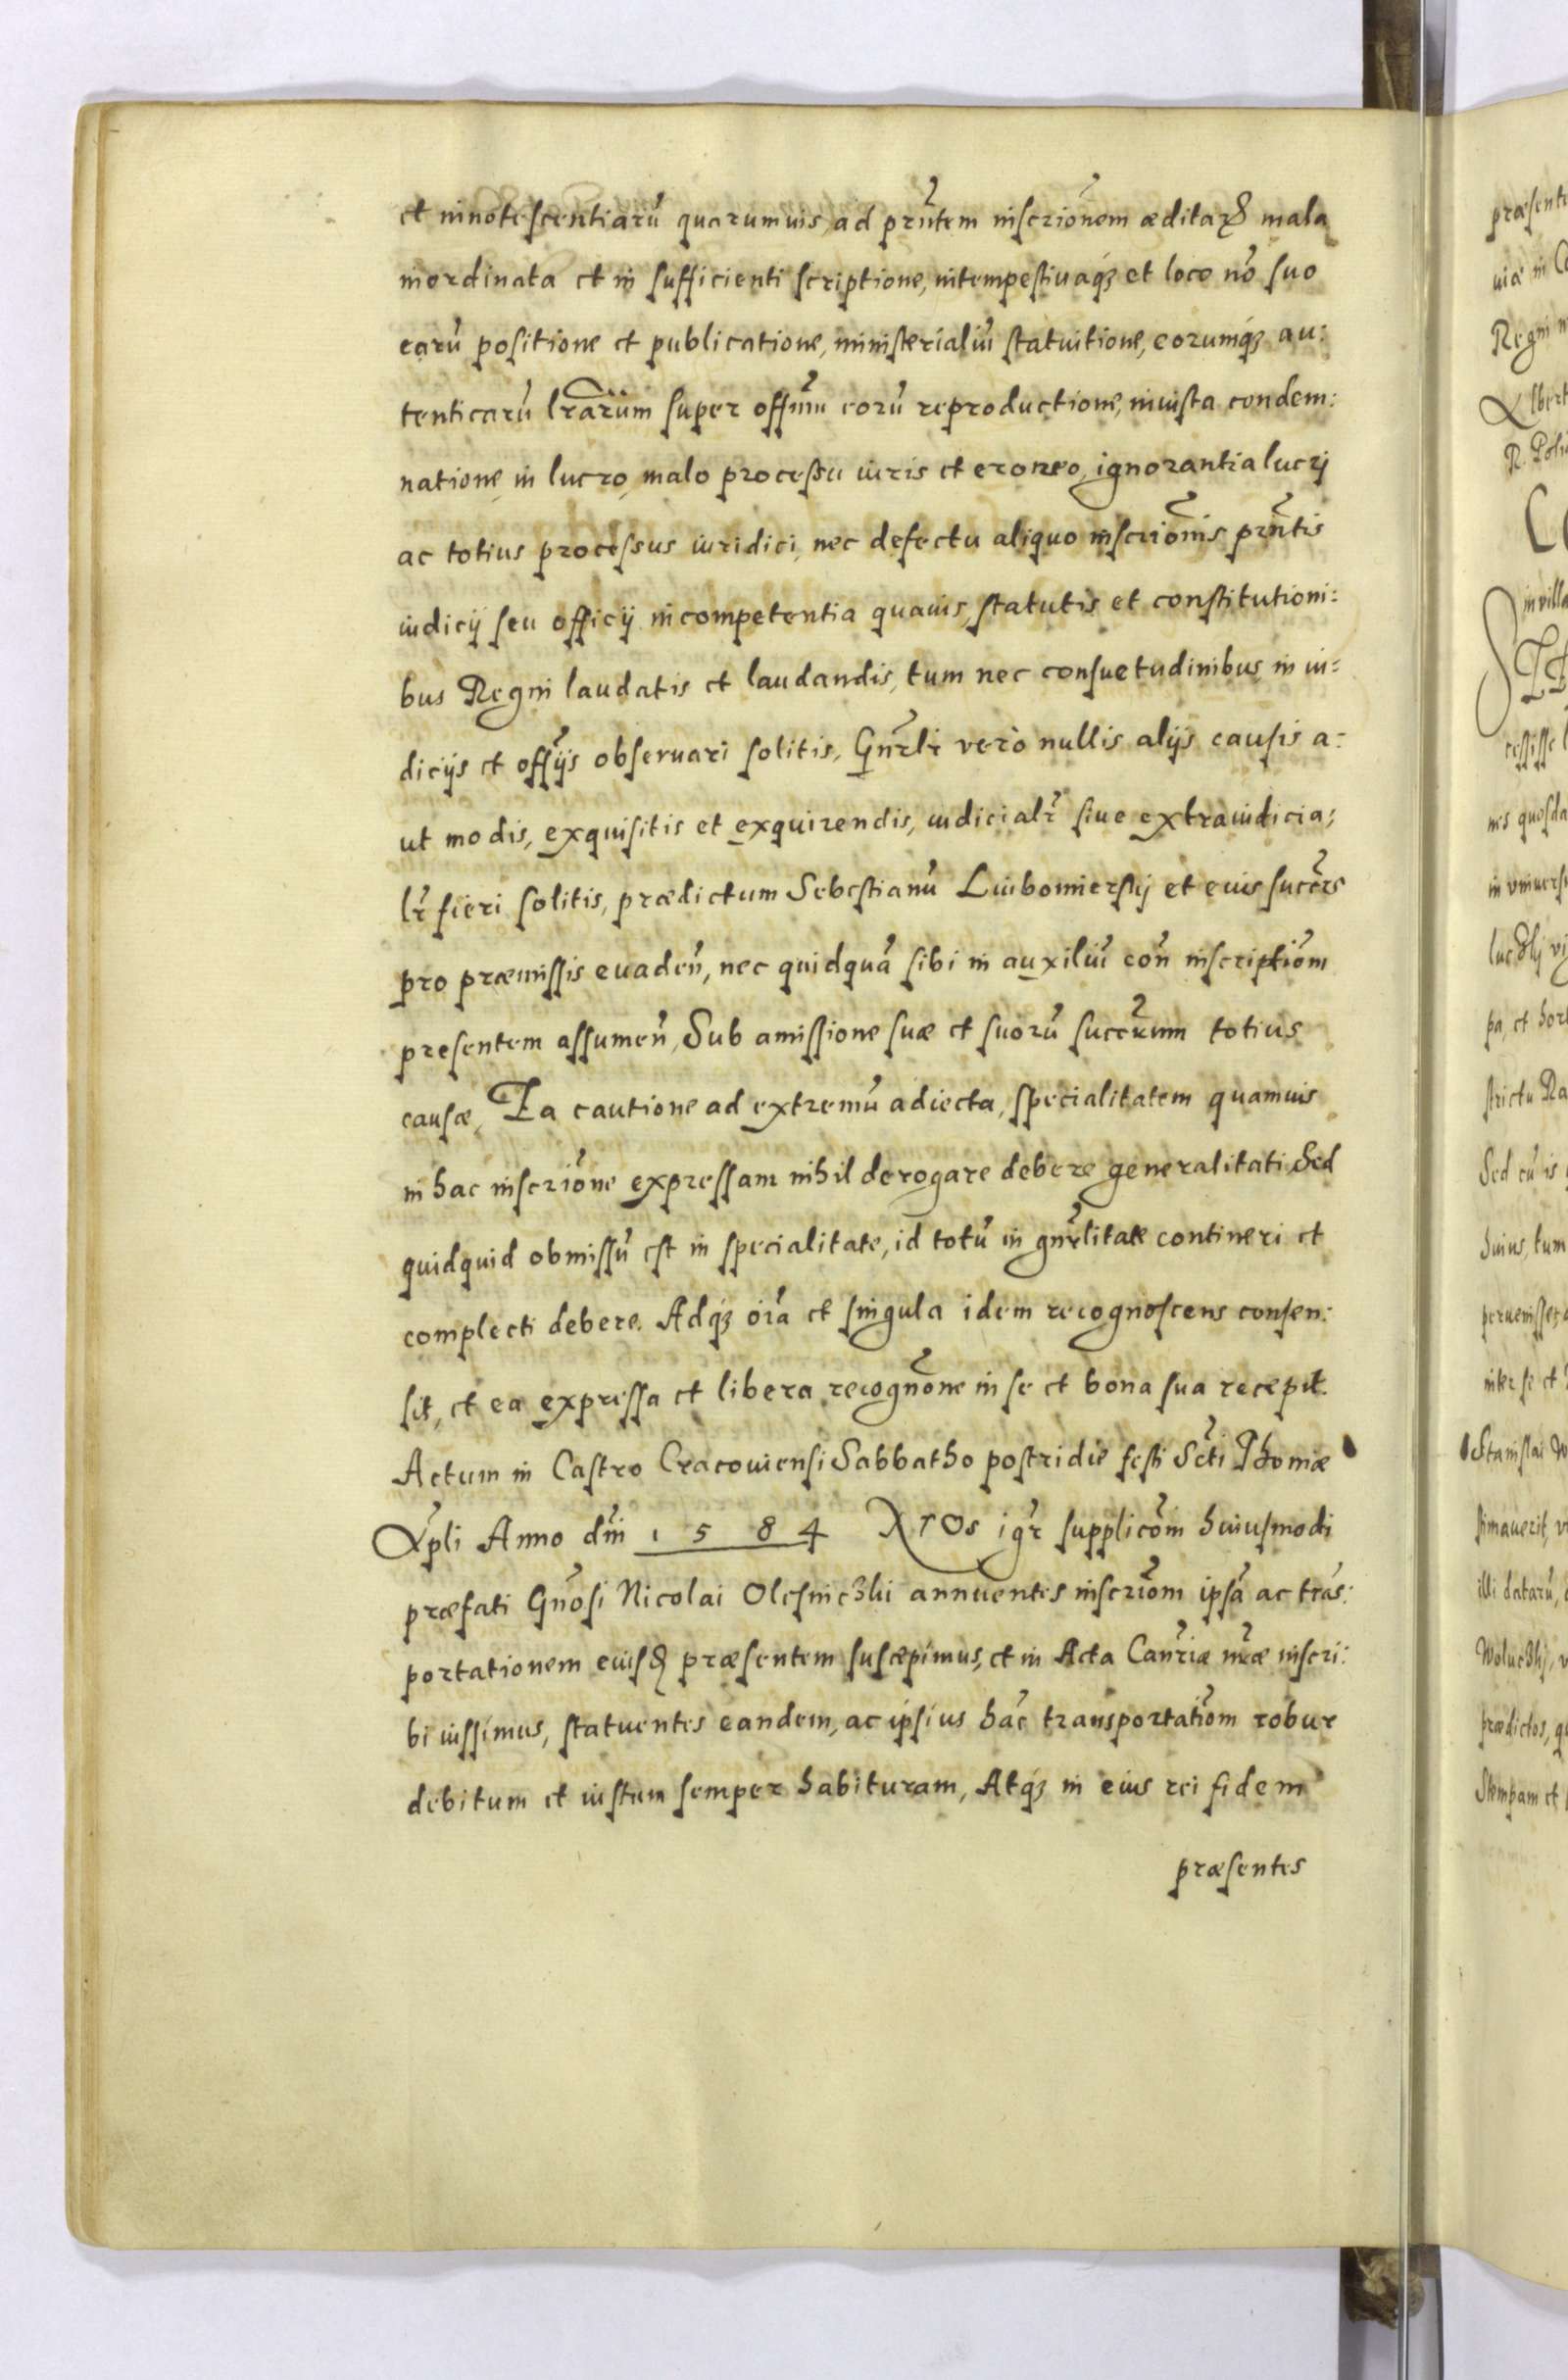 et innotescentiarũ quarumuis, ad prñtem inscriõnem æditaꝝ mala
inordinata et in sufficienti scriptione, intempestiuaqꝫ et loco nõ suo
earũ positione et publicatione, ministerialiũ statuitione, eorumqꝫ au:
tenticarũ lrãrum super offium eorũ reproductione, iniusta condem:
natione, in lucro, malo processu iuris et eroneo, ignorantia lucrj
ac totius processus iuridici, nec defectu aliquo inscriõnis prñtis
iudicij seu officij incompetentia quauis, statutis et constitutioni:
bus Regni laudatis et laudandis, tum nec consuetudinibus in iu:
dicijs et offijs obseruari solitis, Gnrlr vero nullis alijs causis a:
ut modis, exquisitis et exquirendis, iudicialr siue extraiudicia:
lr fieri solitis, prædictum Sebestianũ Liubomierskij et euis succrs
pro præmissis euadeñ, nec quidquã sibi in auxiliũ coñ inscriptiõm
presentem assumeñ, Sub amissione suæ et suorũ succrum totius
causæ, Ea cautione ad extremũ adiecta, specialitatem quamuis
in hac inscriõne expressam nihil derogare debere generalitati, Sed
quidquid obmissũ est in specialitate, id totũ in gnrlitate contineri et
complecti debere. Adqꝫ oĩa et singula idem recognoscens consen:
sit, et ea expressa et libera recognõne in se et bona sua recepit.
Actum in Castro Cracouiensi Sabbatho postridie festi Scti Thomæ
Xpli Anno dñi 1584 Nos igr supplicõm huiusmodi
præfati Gñosi Nicolai Olesniczki annuentes inscriõm ipsã ac trãs:
portationem euisꝺ præsentem suscepimus, et in Acta Canriæ nræ inscri:
bi iussimus, statuentes eandem, ac ipsius hãc transportatiõm robur
debitum et iustum semper habituram, Atqꝫ in eius rei fidem
præsentes